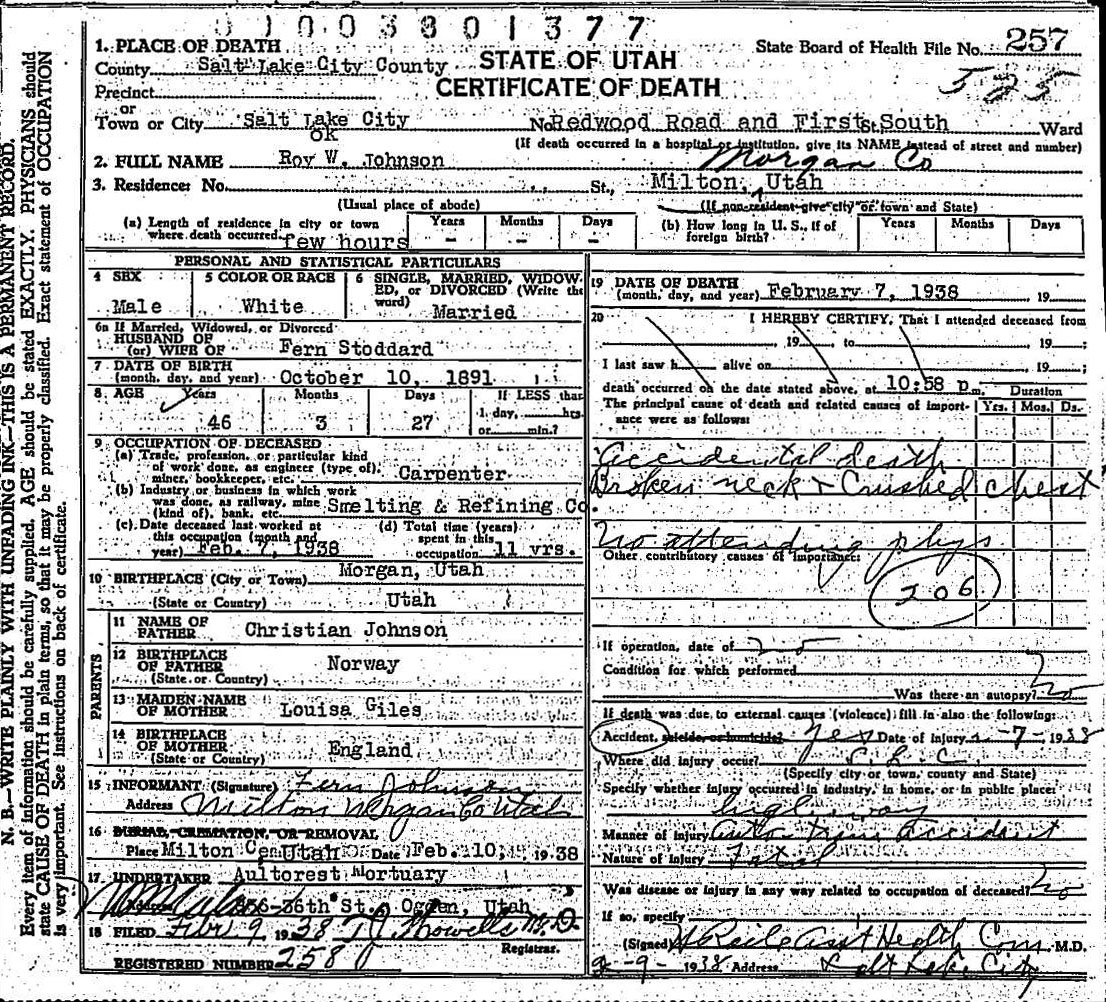 01003801377
1. PLACE OF DEATH
STATE OF UTAH
State Board of Health File No. 257
County Salt Lake City County
CERTIFICATE OF DEATH
525
Precinct
or
Town or City Salt Lake City No. Redwood Road and First St. South Ward
ok
(If death occurred in a hospital or institution, give its NAME instead of street and number)
2. FULL NAME Roy W. Johnson
Morgan Co
3. Residence: No. St., Milton, Utah
(Usual place of abode) (If non-resident give city or town and State)
(a) Length of residence in city or town where death occurred. few hours
Years - Months - Days -
(b) How long in U. S., if of foreign birth? Years Months Days
PERSONAL AND STATISTICAL PARTICULARS
4 SEX Male
5 COLOR OR RACE White
6 SINGLE, MARRIED, WIDOWED, or DIVORCED (Write the word) Married
6a If Married, Widowed, or Divorced
HUSBAND OF
(or) WIFE OF Fern Stoddard
7 DATE OF BIRTH
(month, day, and year) October 10, 1891
8 AGE Years Months Days If LESS than
1 day, hrs.
46 3 27 or min.?
9 OCCUPATION OF DECEASED
(a) Trade, profession, or particular kind
of work done, as engineer (type of),
miner, bookkeeper, etc. Carpenter
(b) Industry or business in which work
was done, as railway, mine
(kind of), bank, etc. Smelting & Refining Co.
(c) Date deceased last worked at
this occupation (month and
year) Feb. 7, 1938
(d) Total time (years)
spent in this
occupation 11 yrs.
10 BIRTHPLACE (City or Town) Morgan, Utah
(State or Country) Utah
PARENTS
11 NAME OF
FATHER Christian Johnson
12 BIRTHPLACE
OF FATHER Norway
(State or Country)
13 MAIDEN NAME
OF MOTHER Louisa Giles
14 BIRTHPLACE
OF MOTHER England
(State or Country)
15 INFORMANT (Signature) Fern Johnson
Address Milton Morgan Co Utah
16 BURIAL, CREMATION, OR REMOVAL
Place Milton Cem Utah Date Feb. 10, 1938
17 UNDERTAKER Aultorest Mortuary
36th St., Ogden, Utah
18 FILED Febr 9 1938 M.D.
Registrar.
REGISTERED NUMBER 258
19 DATE OF DEATH
(month, day, and year) February 7, 1938, 19
20 I HEREBY CERTIFY, That I attended deceased from
, 19 to , 19 ;
I last saw h alive on , 19 ;
death occurred on the date stated above, at 10:58 p.m.
Duration
The principal cause of death and related causes of importance were as follows: Yrs. Mos. Ds.
Accidental death
Broken neck & Crushed chest
No attending phys
Other contributory causes of importance:
206
If operation, date of
Condition for which performed
Was there an autopsy? No
If death was due to external causes (violence) fill in also the following:
Accident, suicide, or homicide? Yes Date of injury 2-7-1938
Where did injury occur? S. L. C.
(Specify city or town, county and State)
Specify whether injury occurred in industry, in home, or in public place:
highway
Manner of injury Auto train accident
Nature of injury Fatal
Was disease or injury in any way related to occupation of deceased? No
If so, specify
(Signed) Asst Health Com M.D.
2-9-1938 Address Salt Lake City
N. B.—WRITE PLAINLY WITH UNFADING INK—THIS IS A PERMANENT RECORD.
Every item of information should be carefully supplied. AGE should be stated EXACTLY. PHYSICIANS should
state CAUSE OF DEATH in plain terms, so that it may be properly classified. Exact statement of OCCUPATION
is very important. See instructions on back of certificate.